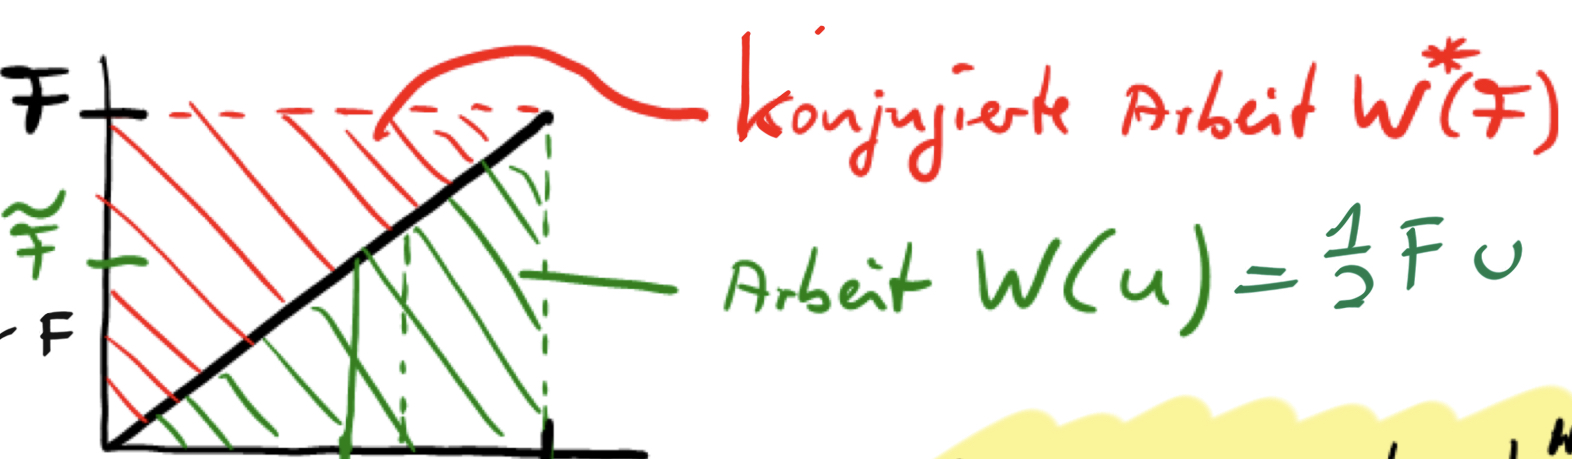 F
Konjugierte Arbeit W*(F)
F̃
Arbeit W(u) = 1/2 F u
F